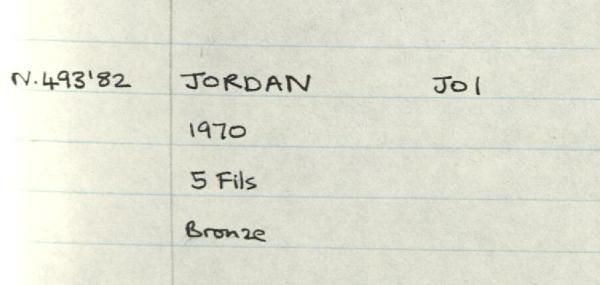 N.493'82 JORDAN JO1
1970
5 Fils
Bronze